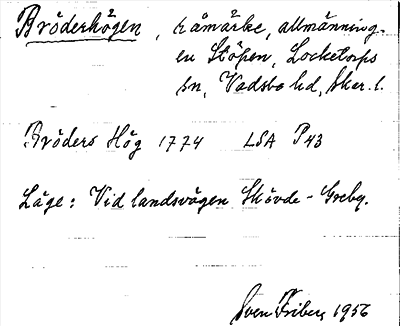 Bröderhögen, råmärke, allmänning-
en Stöpen, Locketorps
sn, Vadsbo hd, Skar. l.
Bröders Hög 1774 LSA P43
Läge: Vid landsvägen Skövde - Greby.
Sven Friberg 1956